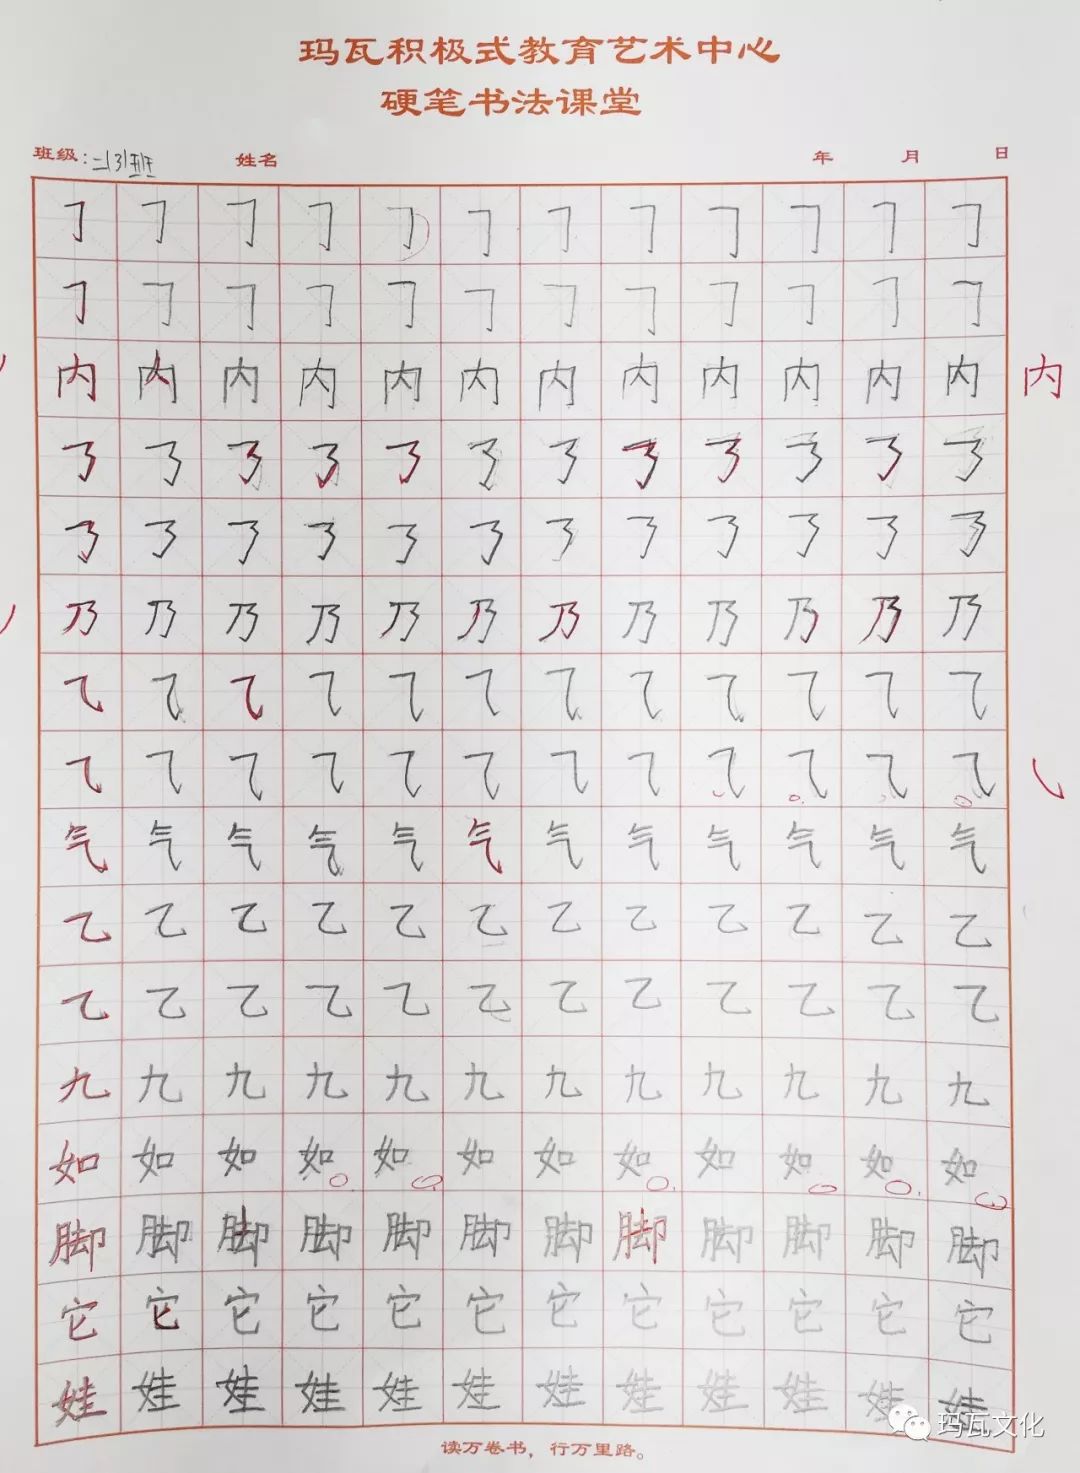 玛瓦积极式教育艺术中心
硬笔书法课堂
班级:二(3)班 姓名 年 月 日
㇆ ㇆ ㇆ ㇆ ㇆ ㇆ ㇆ ㇆ ㇆ ㇆ ㇆ ㇆
㇆ ㇆ ㇆ ㇆ ㇆ ㇆ ㇆ ㇆ ㇆ ㇆ ㇆ ㇆
内 内 内 内 内 内 内 内 内 内 内 内 内
㇡ ㇡ ㇡ ㇡ ㇡ ㇡ ㇡ ㇡ ㇡ ㇡ ㇡ ㇡
㇡ ㇡ ㇡ ㇡ ㇡ ㇡ ㇡ ㇡ ㇡ ㇡ ㇡ ㇡
乃 乃 乃 乃 乃 乃 乃 乃 乃 乃 乃 乃
⺄ ⺄ ⺄ ⺄ ⺄ ⺄ ⺄ ⺄ ⺄ ⺄ ⺄ ⺄
⺄ ⺄ ⺄ ⺄ ⺄ ⺄ ⺄ ⺄ ⺄ ⺄ ⺄ ⺄
气 气 气 气 气 气 气 气 气 气 气 气
乙 乙 乙 乙 乙 乙 乙 乙 乙 乙 乙 乙
乙 乙 乙 乙 乙 乙 乙 乙 乙 乙 乙 乙
九 九 九 九 九 九 九 九 九 九 九 九
如 如 如 如 如 如 如 如 如 如 如 如
脚 脚 脚 脚 脚 脚 脚 脚 脚 脚 脚 脚
它 它 它 它 它 它 它 它 它 它 它 它
娃 娃 娃 娃 娃 娃 娃 娃 娃 娃 娃 娃
读万卷书，行万里路。
玛瓦文化